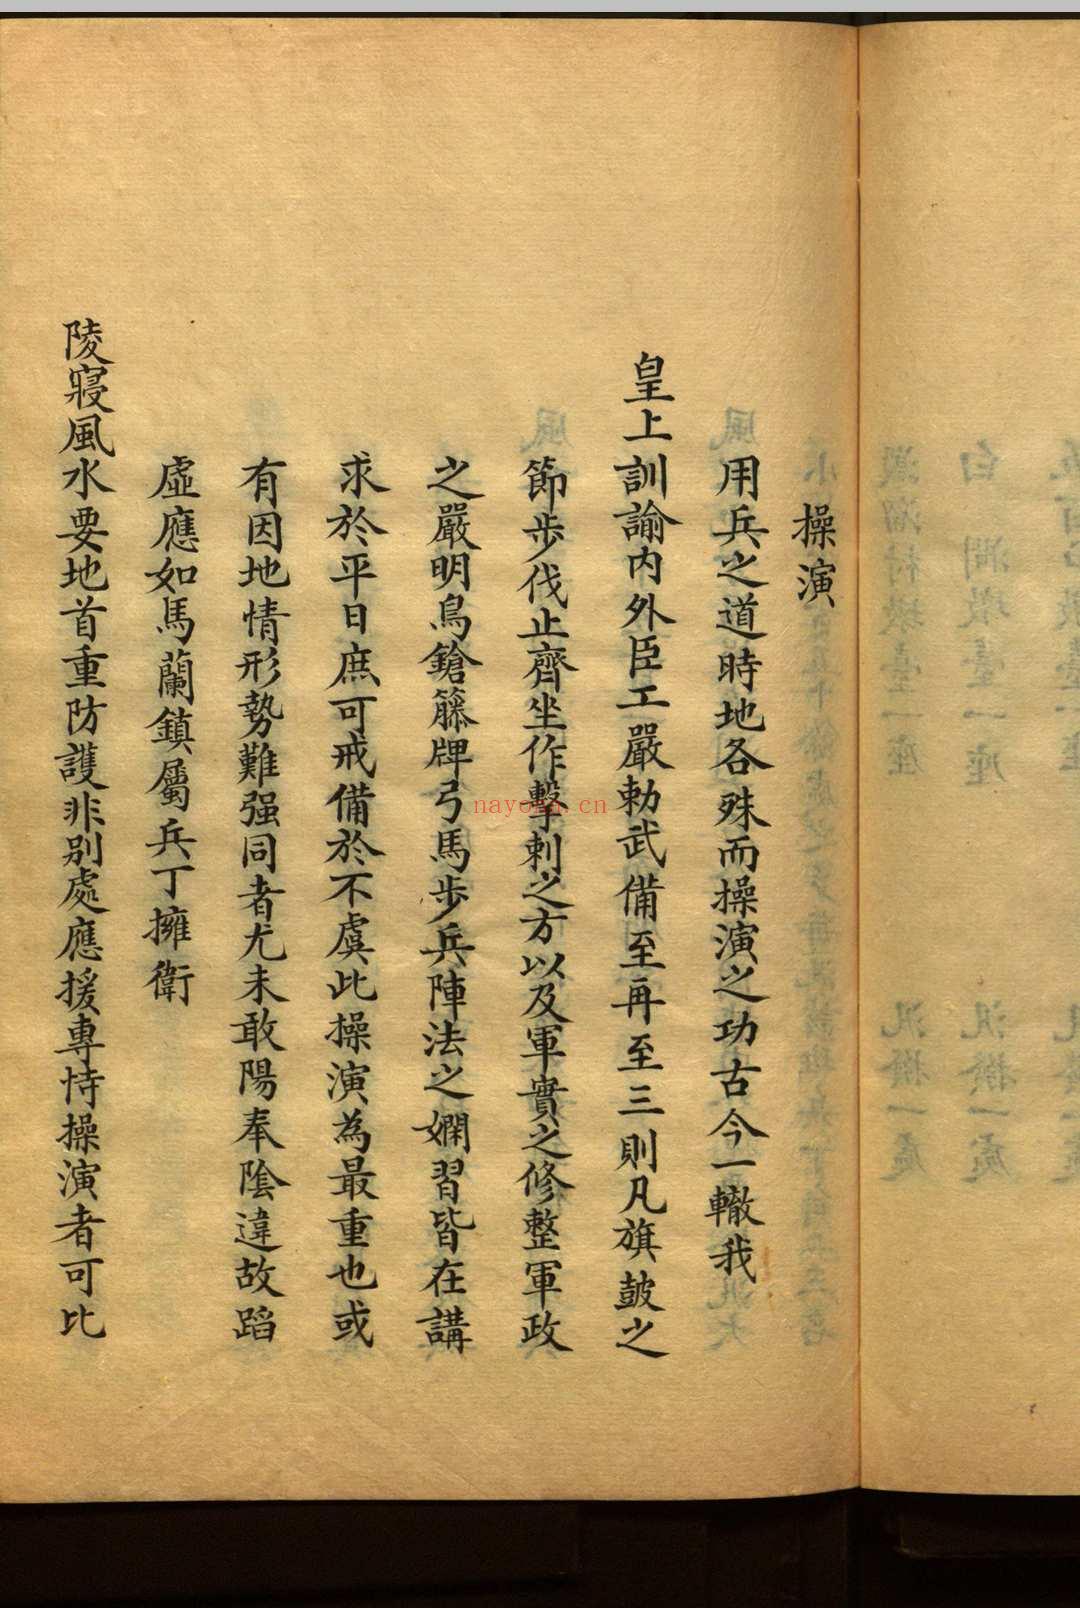 操演
用兵之道時地各殊而操演之功古今一轍我
皇上訓諭內外臣工嚴勅武備至再至三則凡旗鼓之
節步伐止齊坐作擊刺之方以及軍實之修整軍政
之嚴明鳥鎗籐牌弓馬步兵陣法之嫻習皆在講
求於平日庶可戒備於不虞此操演為最重也或
有因地情形勢難强同者尤未敢陽奉陰違故蹈
虛應如馬蘭鎮屬兵丁擁衛
陵寢風水要地首重防護非别處應援專恃操演者可比
nayona.cn